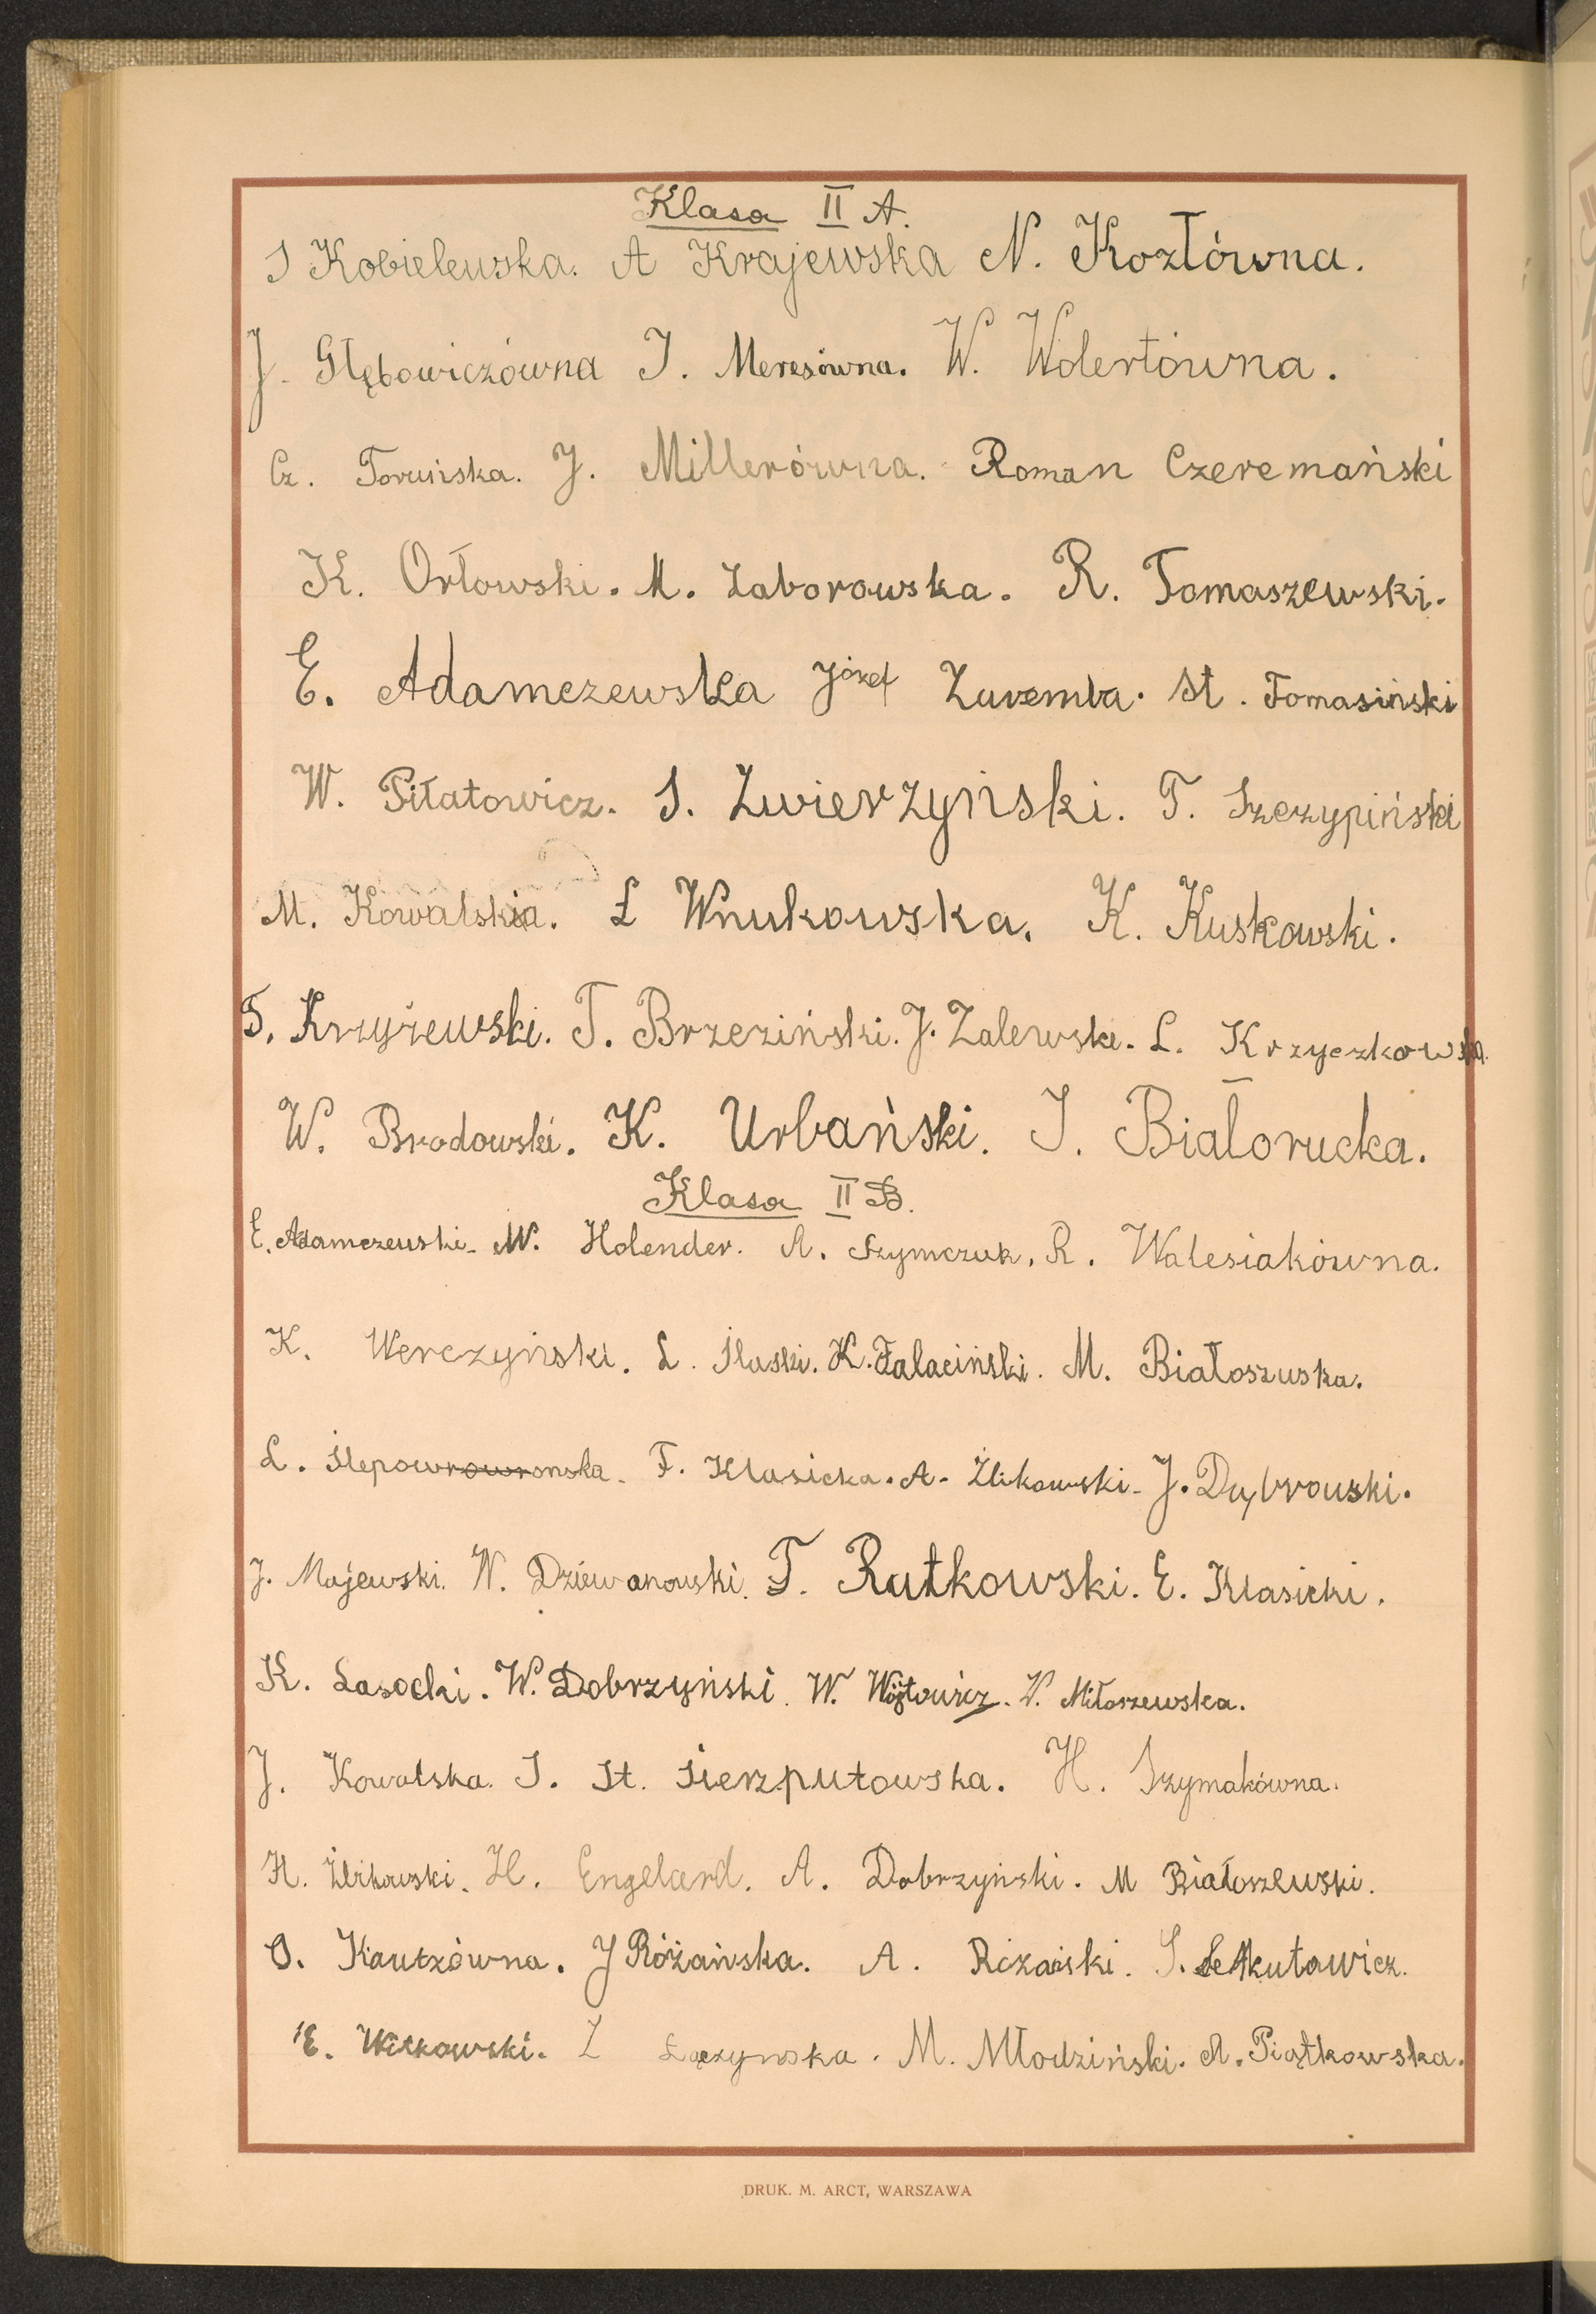 Klasa II A.
S Kobielewska. A Krajewska N. Kozłówna.
J. Głębowiczówna J. Meresówna. W. Wolertówna.
Cz. Toruńska. J. Millerówna. Roman Czeremański
K. Orłowski. M. Zaborowska. R. Tomaszewski.
E. Adamczewska Józef Zaremba. St. Tomasiński
W. Piłatowicz. S. Zwierzyński. T. Szczypiński
M. Kowalska. Ł Wnukowska. K. Kuskowski.
T. Krzyżewski. T. Brzeziński. J. Zalewski. L. Krzyczkowska.
W. Brodowski. K. Urbański. J. Białorucka.
Klasa II B.
E. Adamczewski. W. Holender. A. Szymczuk. R. Walesiakówna.
K. Werczyński. L. Ślaski. K. Falaciński. M. Białoszuska.
L. Ślepowrowronska. F. Klasicka. A. Żbikowski. J. Dąbrowski.
J. Majewski. W. Dziewanowski. T. Rutkowski. E. Klasicki.
K. Lasocki. W. Dobrzyński. W. Wójtowicz. W. Miłoszewska.
J. Kowalska. J. St. Sierzputowska. H. Szymakówna.
H. Żbikowski. H. Engelard. A. Dobrzyński. M Białoszewski.
O. Kautzówna. J Różańska. A. Różański. S. Lekutowicz.
E. Witkowski. Z Łączynska. M. Młodziński. A. Piątkowska.
DRUK. M. ARCT, WARSZAWA